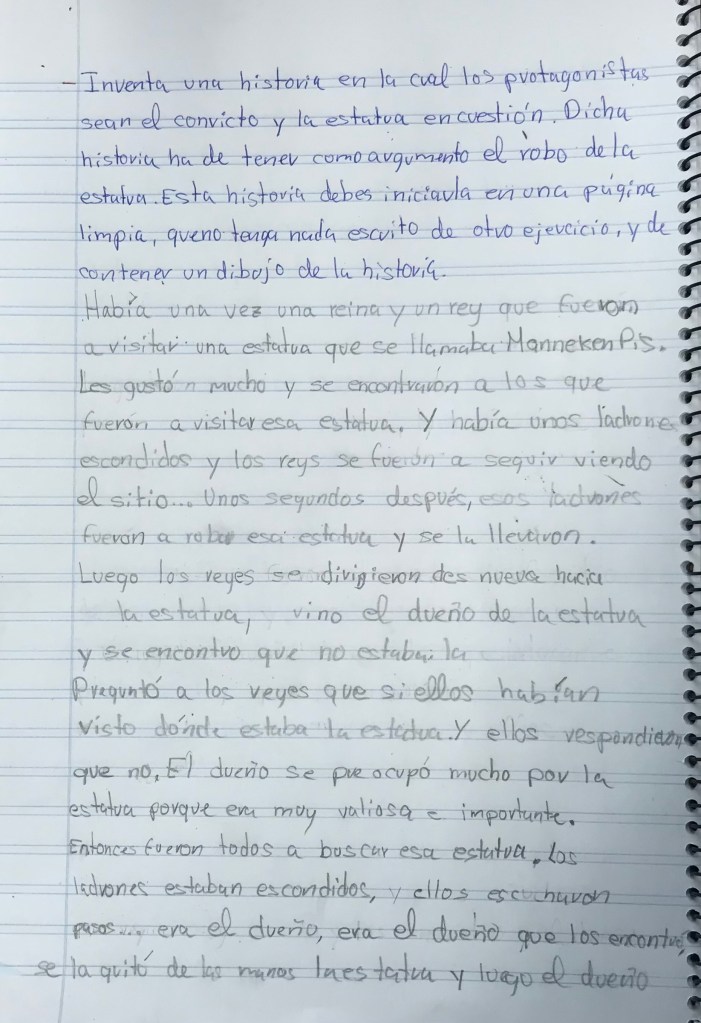 - Inventa una historia en la cual los protagonistas
sean el convicto y la estatua en cuestión. Dicha
historia ha de tener como argumento el robo de la
estatua. Esta historia debes iniciarla en una página
limpia, que no tenga nada escrito de otro ejercicio, y de
contener un dibujo de la historia.
Había una vez una reina y un rey que fueron
a visitar una estatua que se llamaba Manneken Pis.
Les gustón mucho y se encontrarón a los que
fuerón a visitar esa estatua. Y había unos ladrone
escondidos y los reys se fuerón a seguir viendo
el sitio... Unos segundos después, esos ladrones
fueron a robar esa estatua y se la llevaron.
Luego los reyes se dirigieron des nueva hacia
la estatua, vino el dueño de la estatua
y se encontro que no estaba. la
Preguntó a los reyes que si ellos habían
visto dónde estaba la estatua. Y ellos respondieron
que no, El dueño se preocupó mucho por la
estatua porque era muy valiosa e importante.
Entonces fueron todos a buscar esa estatua. Los
ladrones estaban escondidos, y ellos escucharon
pasos... era el dueño, era el dueño que los encontró,
se la quitó de las manos la estatua y luego el dueño